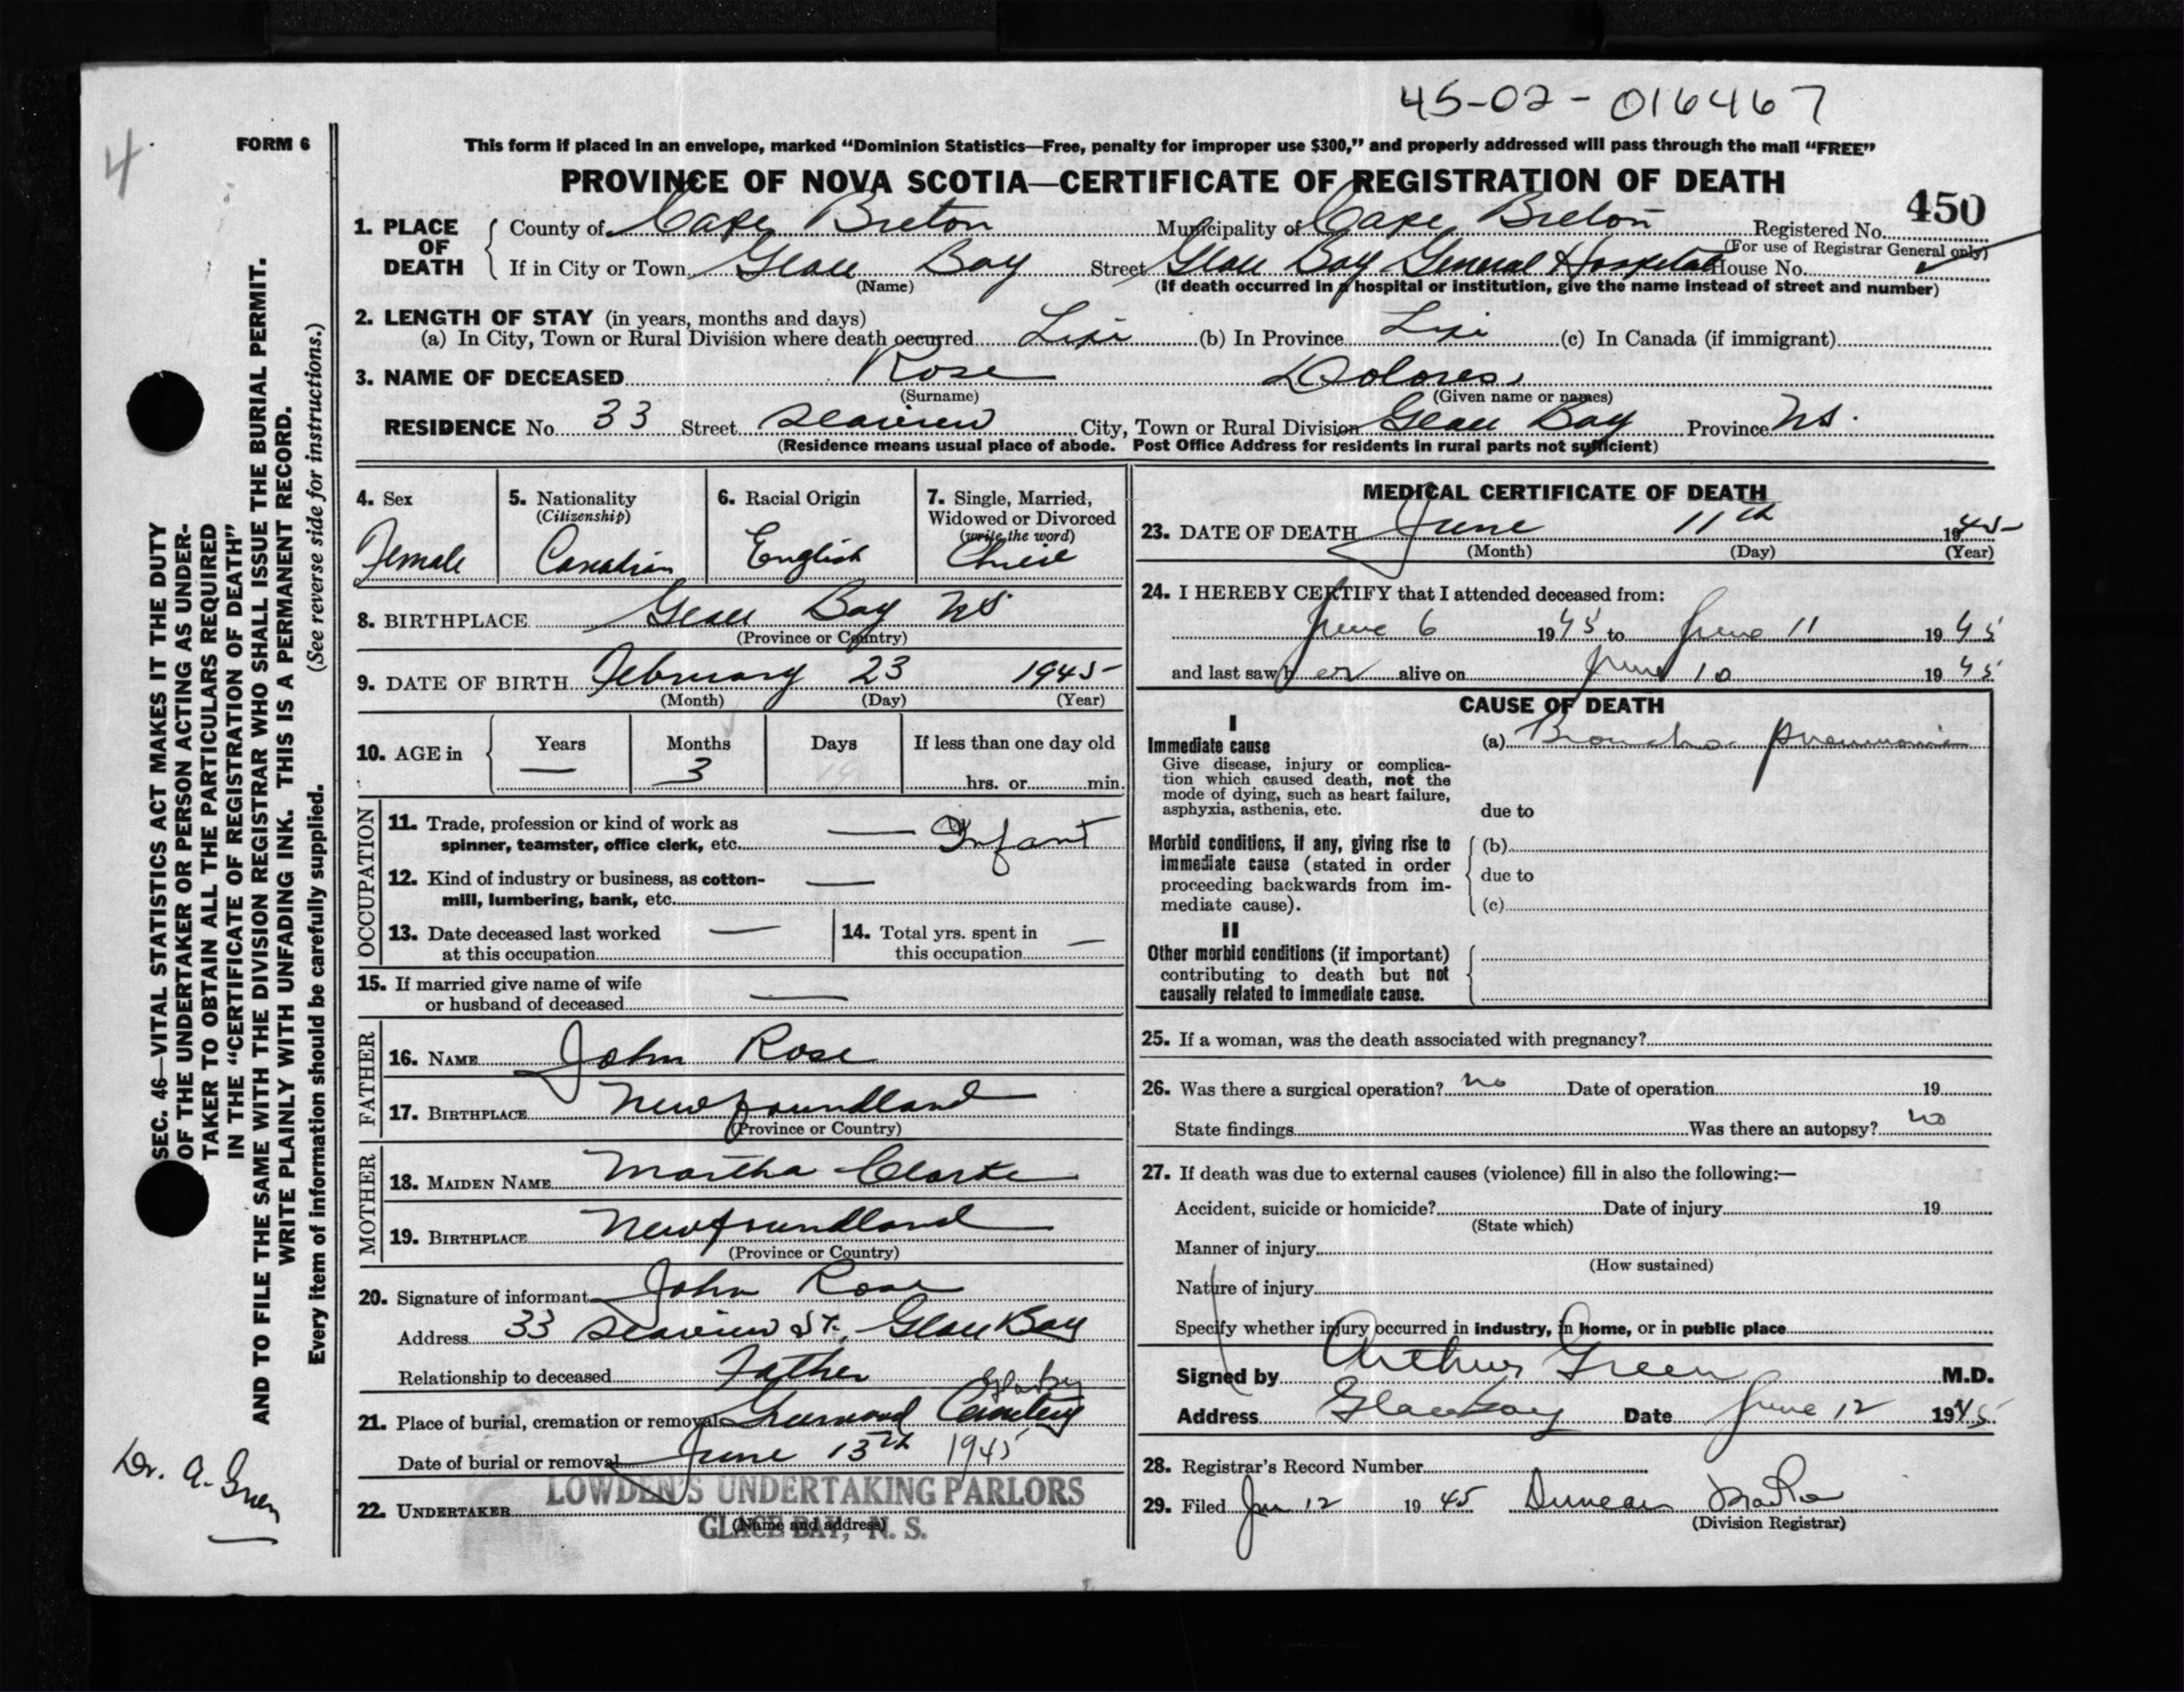 45-02-016467
4
FORM 6
This form if placed in an envelope, marked “Dominion Statistics—Free, penalty for improper use $300,” and properly addressed will pass through the mail “FREE”
PROVINCE OF NOVA SCOTIA—CERTIFICATE OF REGISTRATION OF DEATH
450
1. PLACE OF DEATH
County of Cape Breton Municipality of Cape Breton Registered No.
(For use of Registrar General only)
If in City or Town Glace Bay Street Glace Bay General Hospital House No.
(Name) (If death occurred in a hospital or institution, give the name instead of street and number)
2. LENGTH OF STAY (in years, months and days)
(a) In City, Town or Rural Division where death occurred Life (b) In Province Life (c) In Canada (if immigrant)
3. NAME OF DECEASED Rose Dolores
(Surname) (Given name or names)
RESIDENCE No. 33 Street Seaview City, Town or Rural Division Glace Bay Province N.S.
(Residence means usual place of abode. Post Office Address for residents in rural parts not sufficient)
4. Sex
Female
5. Nationality
(Citizenship)
Canadian
6. Racial Origin
English
7. Single, Married,
Widowed or Divorced
(write the word)
8. BIRTHPLACE Glace Bay NS
(Province or Country)
9. DATE OF BIRTH February 23 1945
(Month) (Day) (Year)
10. AGE in
Years Months Days If less than one day old
— 3 19 hrs. or min.
OCCUPATION
11. Trade, profession or kind of work as
spinner, teamster, office clerk, etc. — Infant
12. Kind of industry or business, as cotton-
mill, lumbering, bank, etc. —
13. Date deceased last worked
at this occupation —
14. Total yrs. spent in
this occupation —
15. If married give name of wife
or husband of deceased —
FATHER
16. NAME John Rose
17. BIRTHPLACE Newfoundland
(Province or Country)
MOTHER
18. MAIDEN NAME Martha Clarke
19. BIRTHPLACE Newfoundland
(Province or Country)
20. Signature of informant John Rose
Address 33 Seaview St., Glace Bay
Relationship to deceased Father
21. Place of burial, cremation or removal Greenwood Cemetery
Date of burial or removal June 13th 1945
22. UNDERTAKER LOWDEN'S UNDERTAKING PARLORS
(Name and address)
GLACE BAY, N. S.
MEDICAL CERTIFICATE OF DEATH
23. DATE OF DEATH June 11th 1945
(Month) (Day) (Year)
24. I HEREBY CERTIFY that I attended deceased from:
June 6 1945 to June 11 1945
and last saw h er alive on June 10 1945
CAUSE OF DEATH
I
Immediate cause
Give disease, injury or complica-
tion which caused death, not the
mode of dying, such as heart failure,
asphyxia, asthenia, etc.
(a) Broncho pneumonia
due to
Morbid conditions, if any, giving rise to
immediate cause (stated in order
proceeding backwards from im-
mediate cause).
(b)
due to
(c)
II
Other morbid conditions (if important)
contributing to death but not
causally related to immediate cause.
25. If a woman, was the death associated with pregnancy?
26. Was there a surgical operation? no Date of operation 19
State findings Was there an autopsy? no
27. If death was due to external causes (violence) fill in also the following:—
Accident, suicide or homicide? Date of injury 19
(State which)
Manner of injury
(How sustained)
Nature of injury
Specify whether injury occurred in industry, in home, or in public place
Signed by Arthur Green M.D.
Address Glace Bay Date June 12 1945
28. Registrar's Record Number
29. Filed Jun 12 1945 Duncan
(Division Registrar)
SEC. 46—VITAL STATISTICS ACT MAKES IT THE DUTY
OF THE UNDERTAKER OR PERSON ACTING AS UNDER-
TAKER TO OBTAIN ALL THE PARTICULARS REQUIRED
IN THE “CERTIFICATE OF REGISTRATION OF DEATH”
AND TO FILE THE SAME WITH THE DIVISION REGISTRAR WHO SHALL ISSUE THE BURIAL PERMIT.
WRITE PLAINLY WITH UNFADING INK. THIS IS A PERMANENT RECORD.
Every item of information should be carefully supplied. (See reverse side for instructions.)
Dr. A. Green